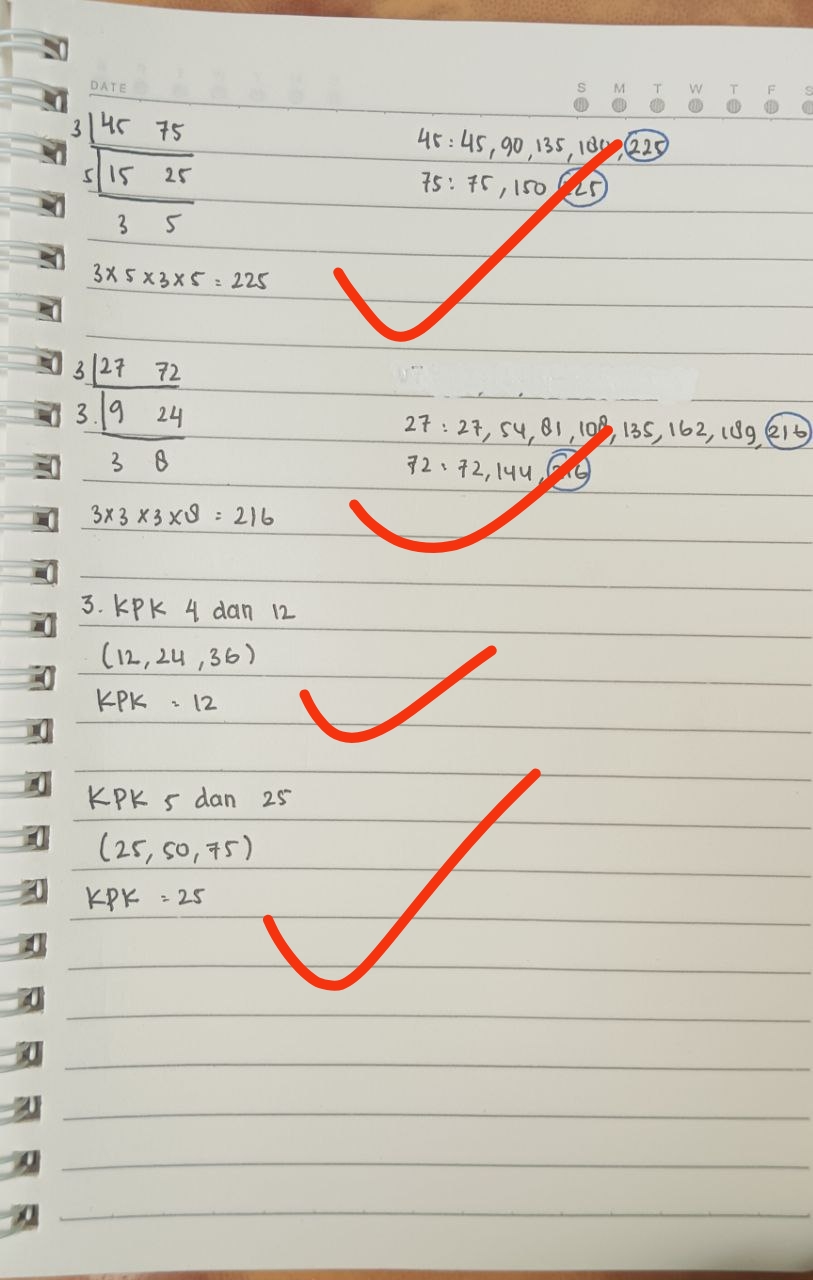 DATE S M T W T F S
3 45 75
5 15 25
3 5
3 x 5 x 3 x 5 = 225
45 : 45, 90, 135, 180, 225
75 : 75, 150, 225
3 27 72
3. 9 24
3 8
3x3 x3 x8 = 216
27 : 27, 54, 81, 108, 135, 162, 189, 216
72 : 72, 144, 216
3. KPK 4 dan 12
(12, 24, 36)
KPK = 12
KPK 5 dan 25
(25, 50, 75)
KPK = 25